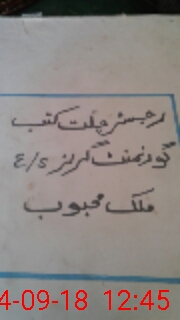 رجسٹر چلت کتب
گورنمنٹ گرلز e/s
ملک محبوب
4-09-18 12:45